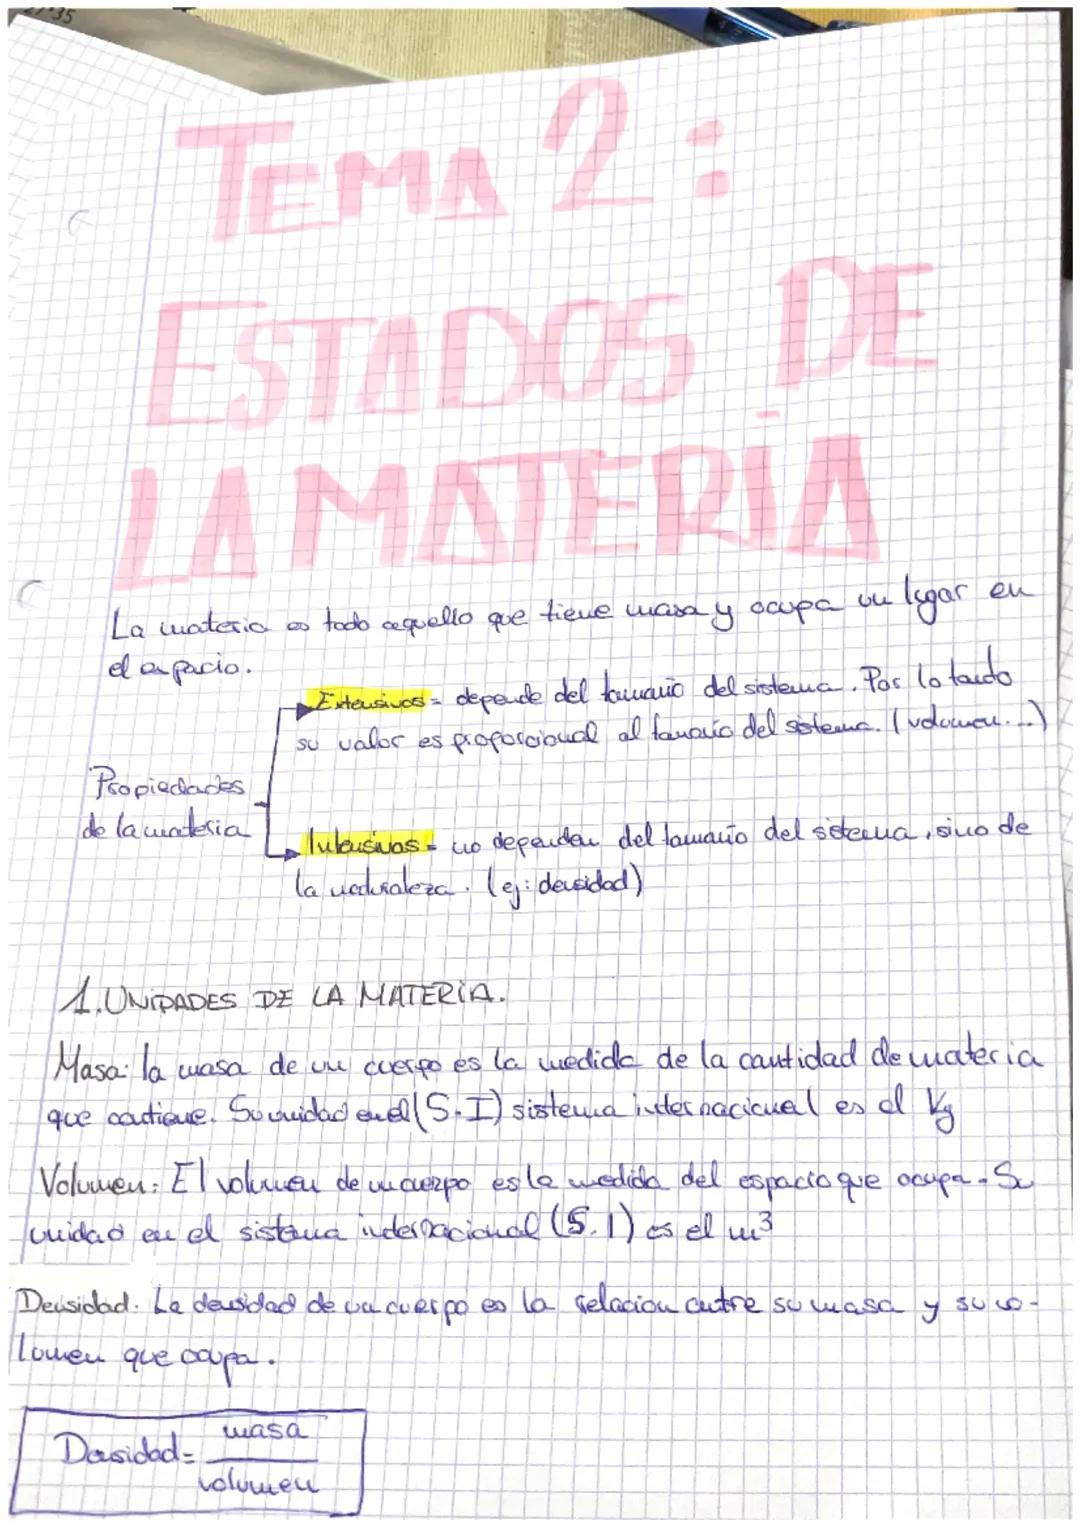 TEMA 2:
ESTADOS DE
LA MATERIA
La materia es todo aquello que tiene masa y ocupa un lugar en
el espacio.
Extensivas = depende del tamaño del sistema. Por lo tanto
su valor es proporcional al tamaño del sistema. (volumen...)
Propiedades
de la materia
Intensivas = no dependen del tamaño del sistema, sino de
la naturaleza. (ej: densidad)
1. UNIDADES DE LA MATERIA.
Masa: la masa de un cuerpo es la medida de la cantidad de materia
que contiene. Su unidad en el (S.I) sistema internacional es el Kg
Volumen: El volumen de un cuerpo es la medida del espacio que ocupa. Su
unidad en el sistema internacional (S.I) es el m³
Densidad: La densidad de un cuerpo es la relacion entre su masa y su vo-
lumen que ocupa.
Densidad = masa
volumen